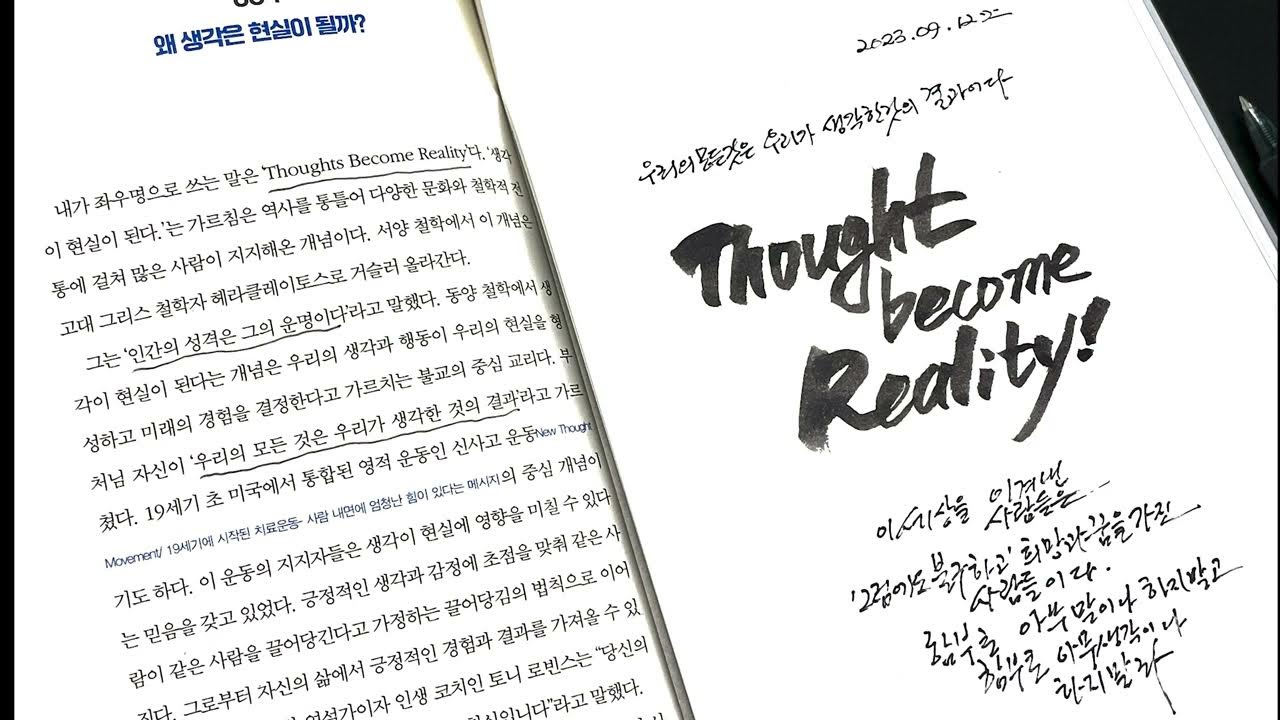 왜 생각은 현실이 될까?
내가 좌우명으로 쓰는 말은 ‘Thoughts Become Reality’다. ‘생각
이 현실이 된다.’는 가르침은 역사를 통틀어 다양한 문화와 철학적 전
통에 걸쳐 많은 사람이 지지해온 개념이다. 서양 철학에서 이 개념은
고대 그리스 철학자 헤라클레이토스로 거슬러 올라간다.
그는 ‘인간의 성격은 그의 운명이다’라고 말했다. 동양 철학에서 생
각이 현실이 된다는 개념은 우리의 생각과 행동이 우리의 현실을 형
성하고 미래의 경험을 결정한다고 가르치는 불교의 중심 교리다. 부
처님 자신이 ‘우리의 모든 것은 우리가 생각한 것의 결과’라고 가르
쳤다. 19세기 초 미국에서 통합된 영적 운동인 신사고 운동New Thought
Movement/ 19세기에 시작된 치료운동- 사람 내면에 엄청난 힘이 있다는 메시지의 중심 개념이
기도 하다. 이 운동의 지지자들은 생각이 현실에 영향을 미칠 수 있다
는 믿음을 갖고 있었다. 긍정적인 생각과 감정에 초점을 맞춰 같은 사
람이 같은 사람을 끌어당긴다고 가정하는 끌어당김의 법칙으로 이어
진다. 그로부터 자신의 삶에서 긍정적인 경험과 결과를 가져올 수 있
연설가이자 인생 코치인 토니 로빈스는 “당신의
현실입니다”라고 말했다.
2023.09.12.
우리의 모든것은 우리가 생각한것의 결과이다
Thought
become
Reality!
이 세상을 이겨낸
사람들은...
'그럼에도 불구하고' 희망과 꿈을 가진
사람들이다.
함부로 아무말이나 하지말고
함부로 아무생각이나
하지말라